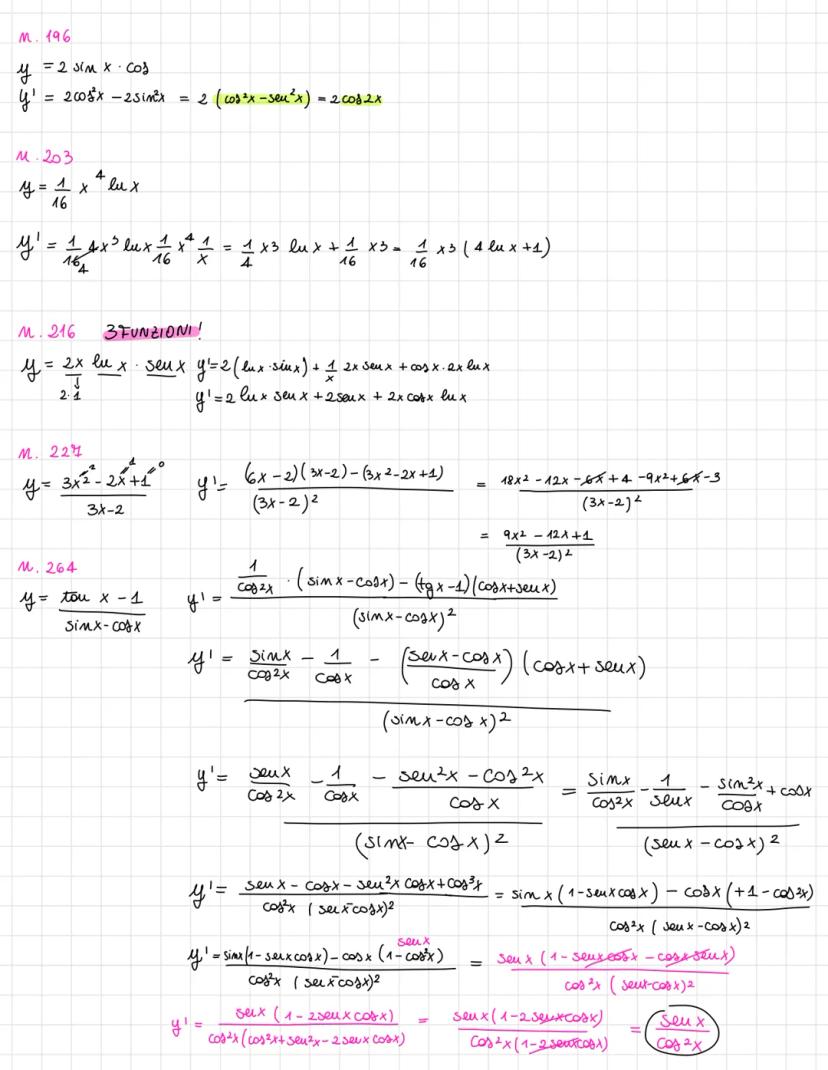 n. 196
y = 2 sin x · cos
y' = 2cos²x - 2sin²x = 2 (cos²x - sen²x) = 2 cos 2x
n. 203
y = 1/16 x⁴ ln x
y' = 1/16 4x³ ln x 1/16 x⁴ 1/x = 1/4 x3 ln x + 1/16 x3 = 1/16 x3 (4 ln x + 1)
n. 216 3 FUNZIONI!
y = 2x ln x · sen x y' = 2 (ln x · sin x) + 1/x 2x sen x + cos x · 2x ln x
2·1 y' = 2 ln x sen x + 2 sen x + 2x cos x ln x
n. 227
y = (3x² - 2x + 1)/(3x - 2) y' = ((6x - 2)(3x - 2) - (3x² - 2x + 1))/(3x - 2)² = (18x² - 12x - 6x + 4 - 9x² + 6x - 3)/(3x - 2)²
= (9x² - 12x + 1)/(3x - 2)²
n. 264
y = (tan x - 1)/(sin x - cos x) y' = (1/cos²x · (sin x - cos x) - (tg x - 1)(cos x + sen x))/(sin x - cos x)²
y' = (sin x/cos²x - 1/cos x - ((sen x - cos x)/cos x)(cos x + sen x))/(sin x - cos x)²
y' = (sen x/cos²x - 1/cos x - (sen²x - cos²x)/cos x)/(sin x - cos x)² = (sin x/cos²x - 1/sen x - sin²x/cos x + cos x)/(sen x - cos x)²
y' = (sen x - cos x - sen²x cos x + cos³x)/(cos²x (sen x - cos x)²) = (sin x (1 - sen x cos x) - cos x (+1 - cos²x))/(cos²x (sen x - cos x)²)
sen x
y' = (sin x (1 - sen x cos x) - cos x (1 - cos²x))/(cos²x (sen x - cos x)²) = (sen x (1 - sen x cos x - cos x sen x))/(cos²x (sen x - cos x)²)
y' = (sen x (1 - 2 sen x cos x))/(cos²x (cos²x + sen²x - 2 sen x cos x)) = (sen x (1 - 2 sen x cos x))/(cos²x (1 - 2 sen x cos x)) = sen x/cos²x